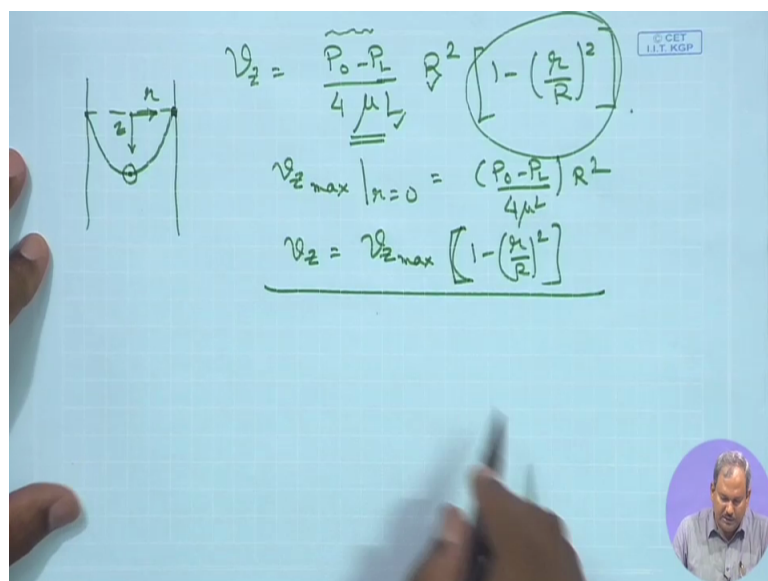 © CET
I.I.T. KGP
v_z = (P_0 - P_L) / (4 μ L) R^2 [1 - (r/R)^2] .
r
z
v_z max |_{r=0} = (P_0 - P_L / 4μL) R^2
v_z = v_z max [1 - (r/R)^2]